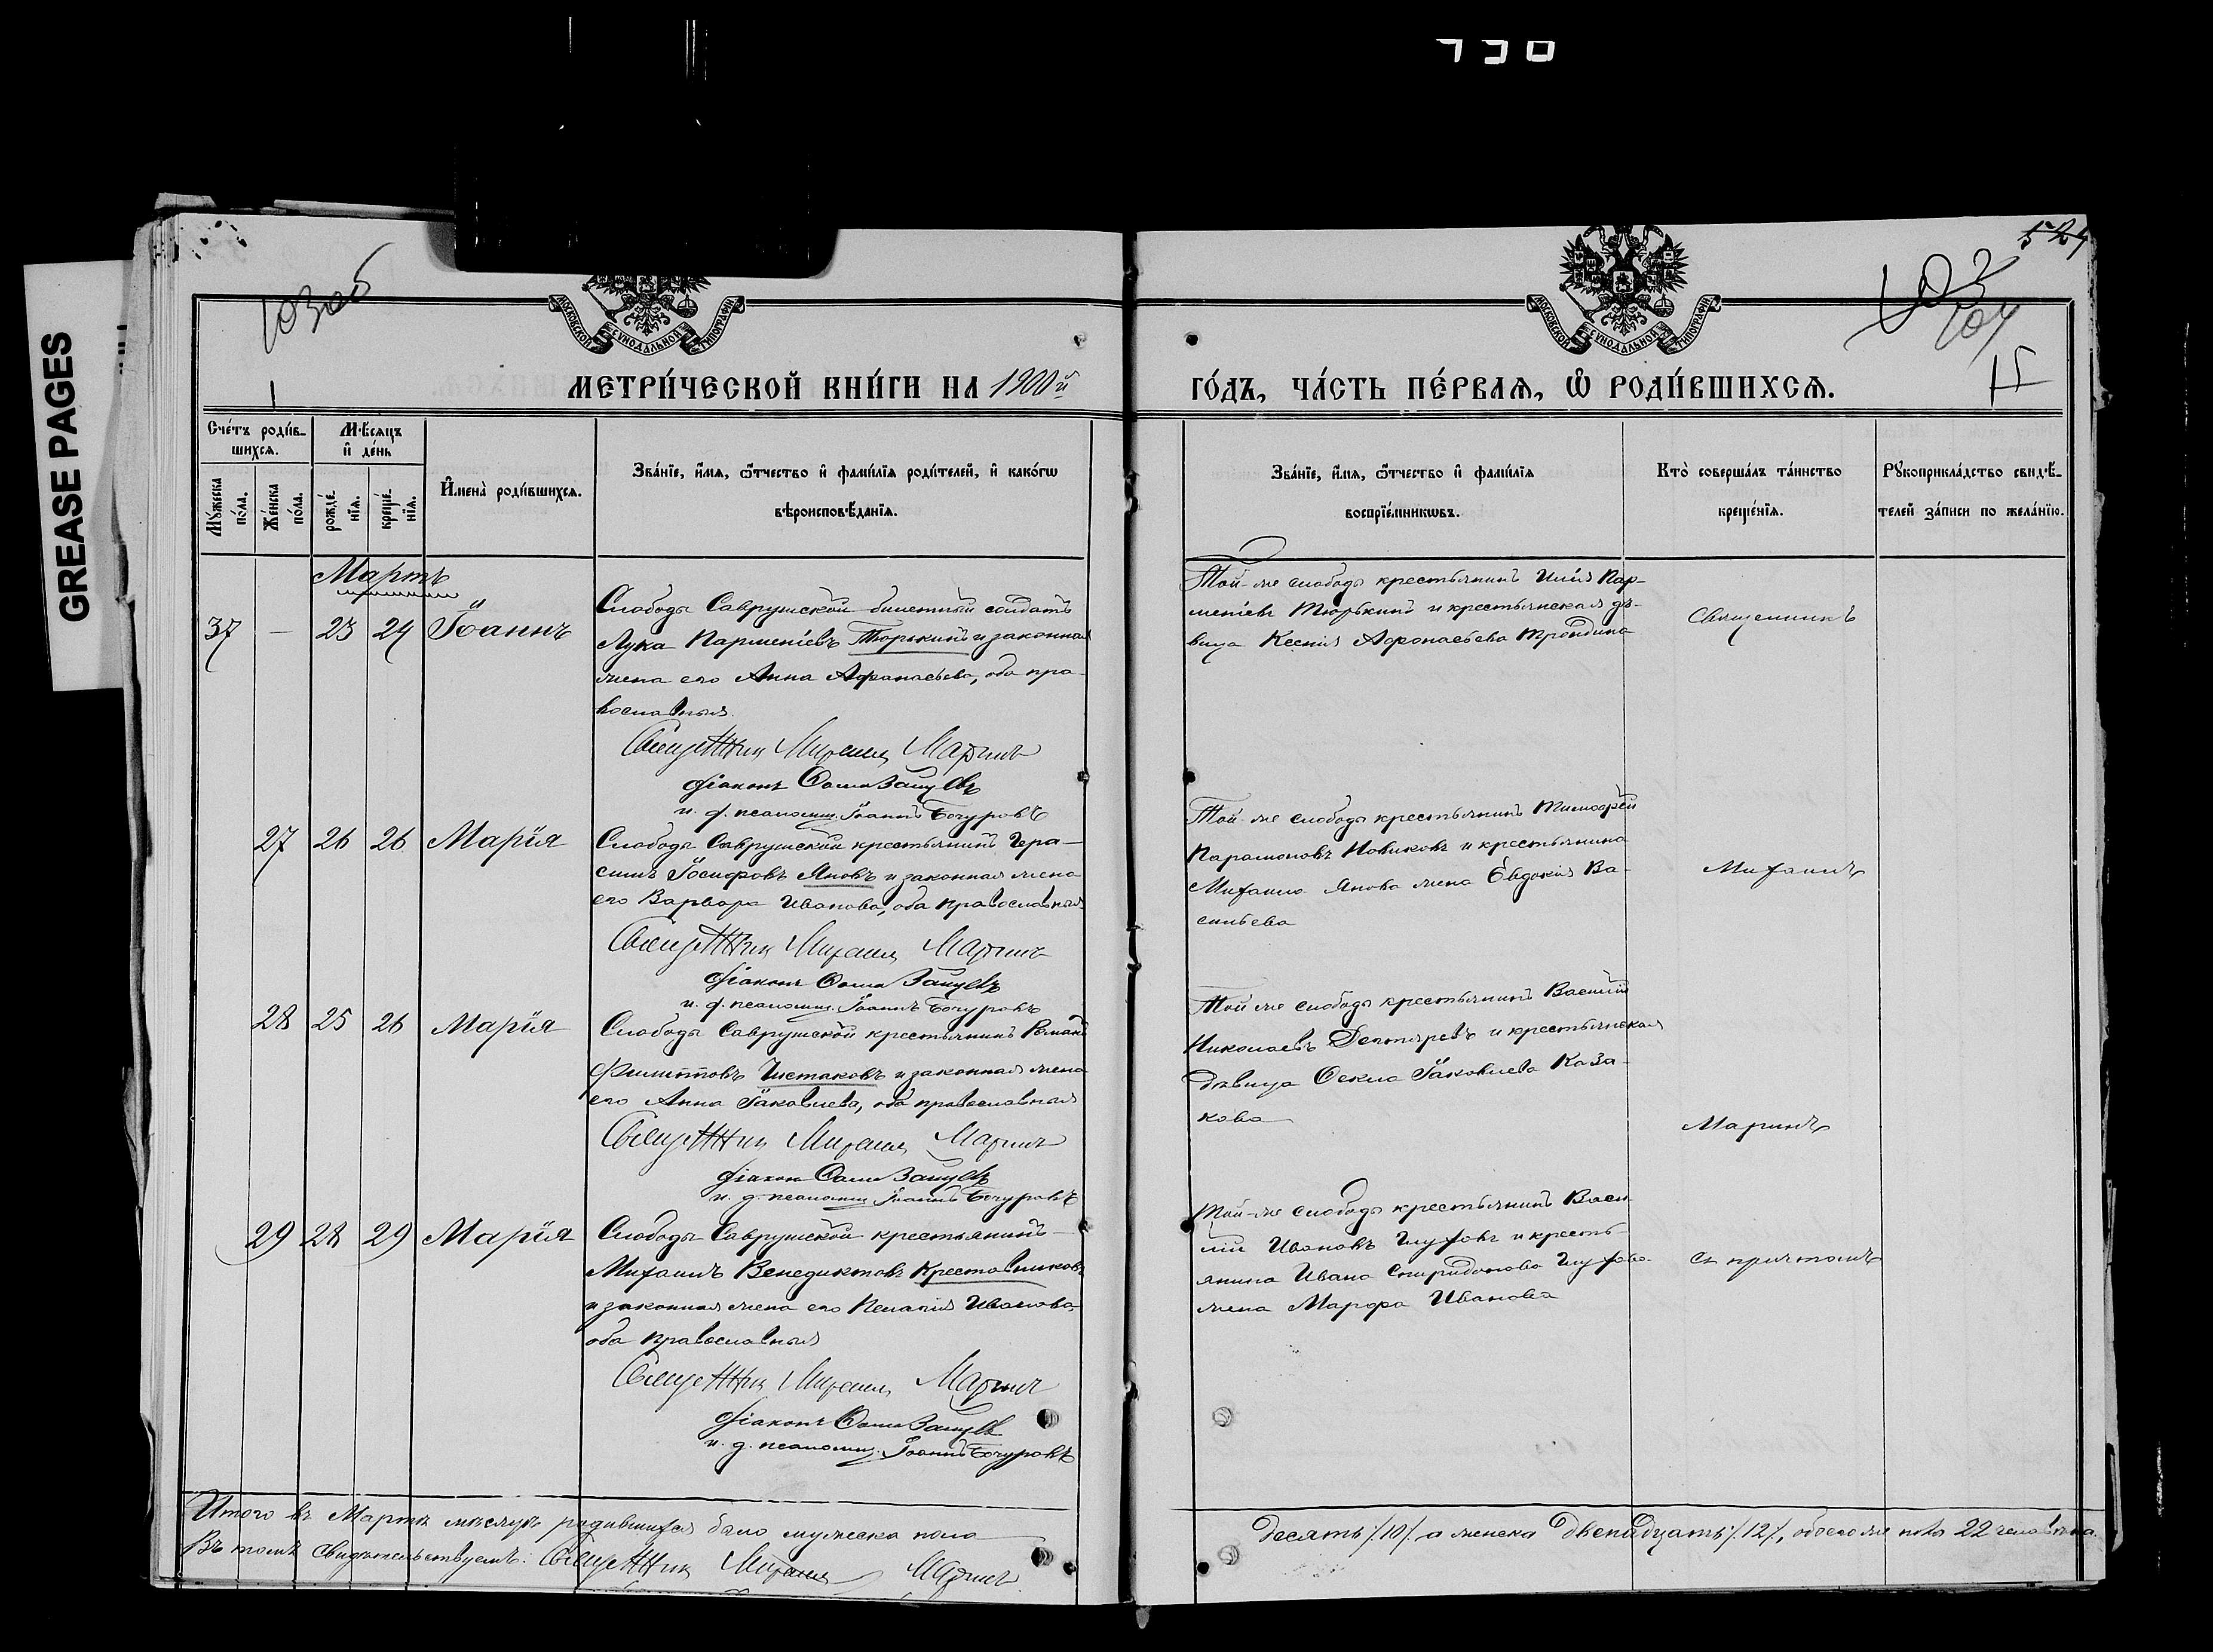 730
GREASE PAGES
103об
524
103
104
15
МОСКОВСКОЙ СѴНОДАЛЬНОЙ ТИПОГРАФІИ
МОСКОВСКОЙ СѴНОДАЛЬНОЙ ТИПОГРАФІИ
МЕТРИ́ЧЕСКОЙ КНИ́ГИ НА 1900й
ГО́ДЪ, ЧА́СТЬ ПЕ́РВАѦ, Ѽ РОДИ́ВШИХСѦ.
Сче́тъ роди́в-
шихся.
Мѣ́сяцъ
и҆ де́нь
Му́жеска
по́ла.
Же́нска
по́ла.
рожде́-
нїя.
креще́-
нїя.
И҆мена̀ роди́вшихся.
Зва́нїе, и҆́мя, ѻ҆́тчество и҆ фами́лїя роди́телей, и҆ како́гѡ
вѣроисповѣ́данїя.
Зва́нїе, и҆́мя, ѻ҆́тчество и҆ фами́лїя
воспрїе́мникѡвъ.
Кто̀ соверша́лъ та́инство
креще́нїя.
Рꙋкоприкла́дство свидѣ́-
телей за́писи по жела́нїю.
Мартъ
37 — 23 24 Іоаннъ
Слободы Саврушской билетный солдатъ
Лука Парменіевъ Тюрькинъ и законная
жена его Анна Афанасьева, оба пра-
вославныя.
Священникъ Михаилъ Маринъ
Діаконъ Ѳома Зайцевъ
и. д. псаломщ. Іоаннъ Бочуровъ
Той-же слободы крестьянинъ Илія Пар-
меніевъ Тюрькинъ и крестьянская дѣ-
вица Ксенія Афонасьева Трондина
Священникъ
27 26 26 Марія
Слободы Саврушской крестьянинъ Гера-
симъ Іосифовъ Яновъ и законная жена
его Варвара Иванова, оба православныя
Священникъ Михаилъ Маринъ
Діаконъ Ѳома Зайцевъ
и. д. псаломщ. Іоаннъ Бочуровъ
Той-же слободы крестьянинъ Тимофей
Парамоновъ Новиковъ и крестьянина
Михаила Янова жена Евдокія Ва-
сильева
Михаилъ
28 25 26 Марія
Слободы Саврушской крестьянинъ Романъ
Филипповъ Чистаковъ и законная жена
его Анна Іаковлева, оба православныя
Священникъ Михаилъ Маринъ
Діаконъ Ѳома Зайцевъ
и. д. псаломщ. Іоаннъ Бочуровъ
Той же слободы крестьянинъ Василій
Николаевъ Дегтяревъ и крестьянская
дѣвица Ѳекла Іаковлева Каза-
кова
Маринъ
29 28 29 Марія
Слободы Саврушской крестьянинъ
Михаилъ Венедиктовъ Крестовниковъ
и законная жена его Пелагія Иванова,
оба православныя
Священникъ Михаилъ Маринъ
Діаконъ Ѳома Зайцевъ
и. д. псаломщ. Іоаннъ Бочуровъ
Той-же слободы крестьянинъ Васи-
лій Ивановъ Глуховъ и кресть-
янина Ивана Спиридонова Глухова
жена Марфа Иванова
съ причтомъ
Итого въ Мартѣ мѣсяцѣ родившихся было мужеска пола
десять /10/ а женска двенадцать /12/, обоего же пола 22 человѣка.
Въ томъ свидѣтельствуемъ: Священникъ Михаилъ Маринъ